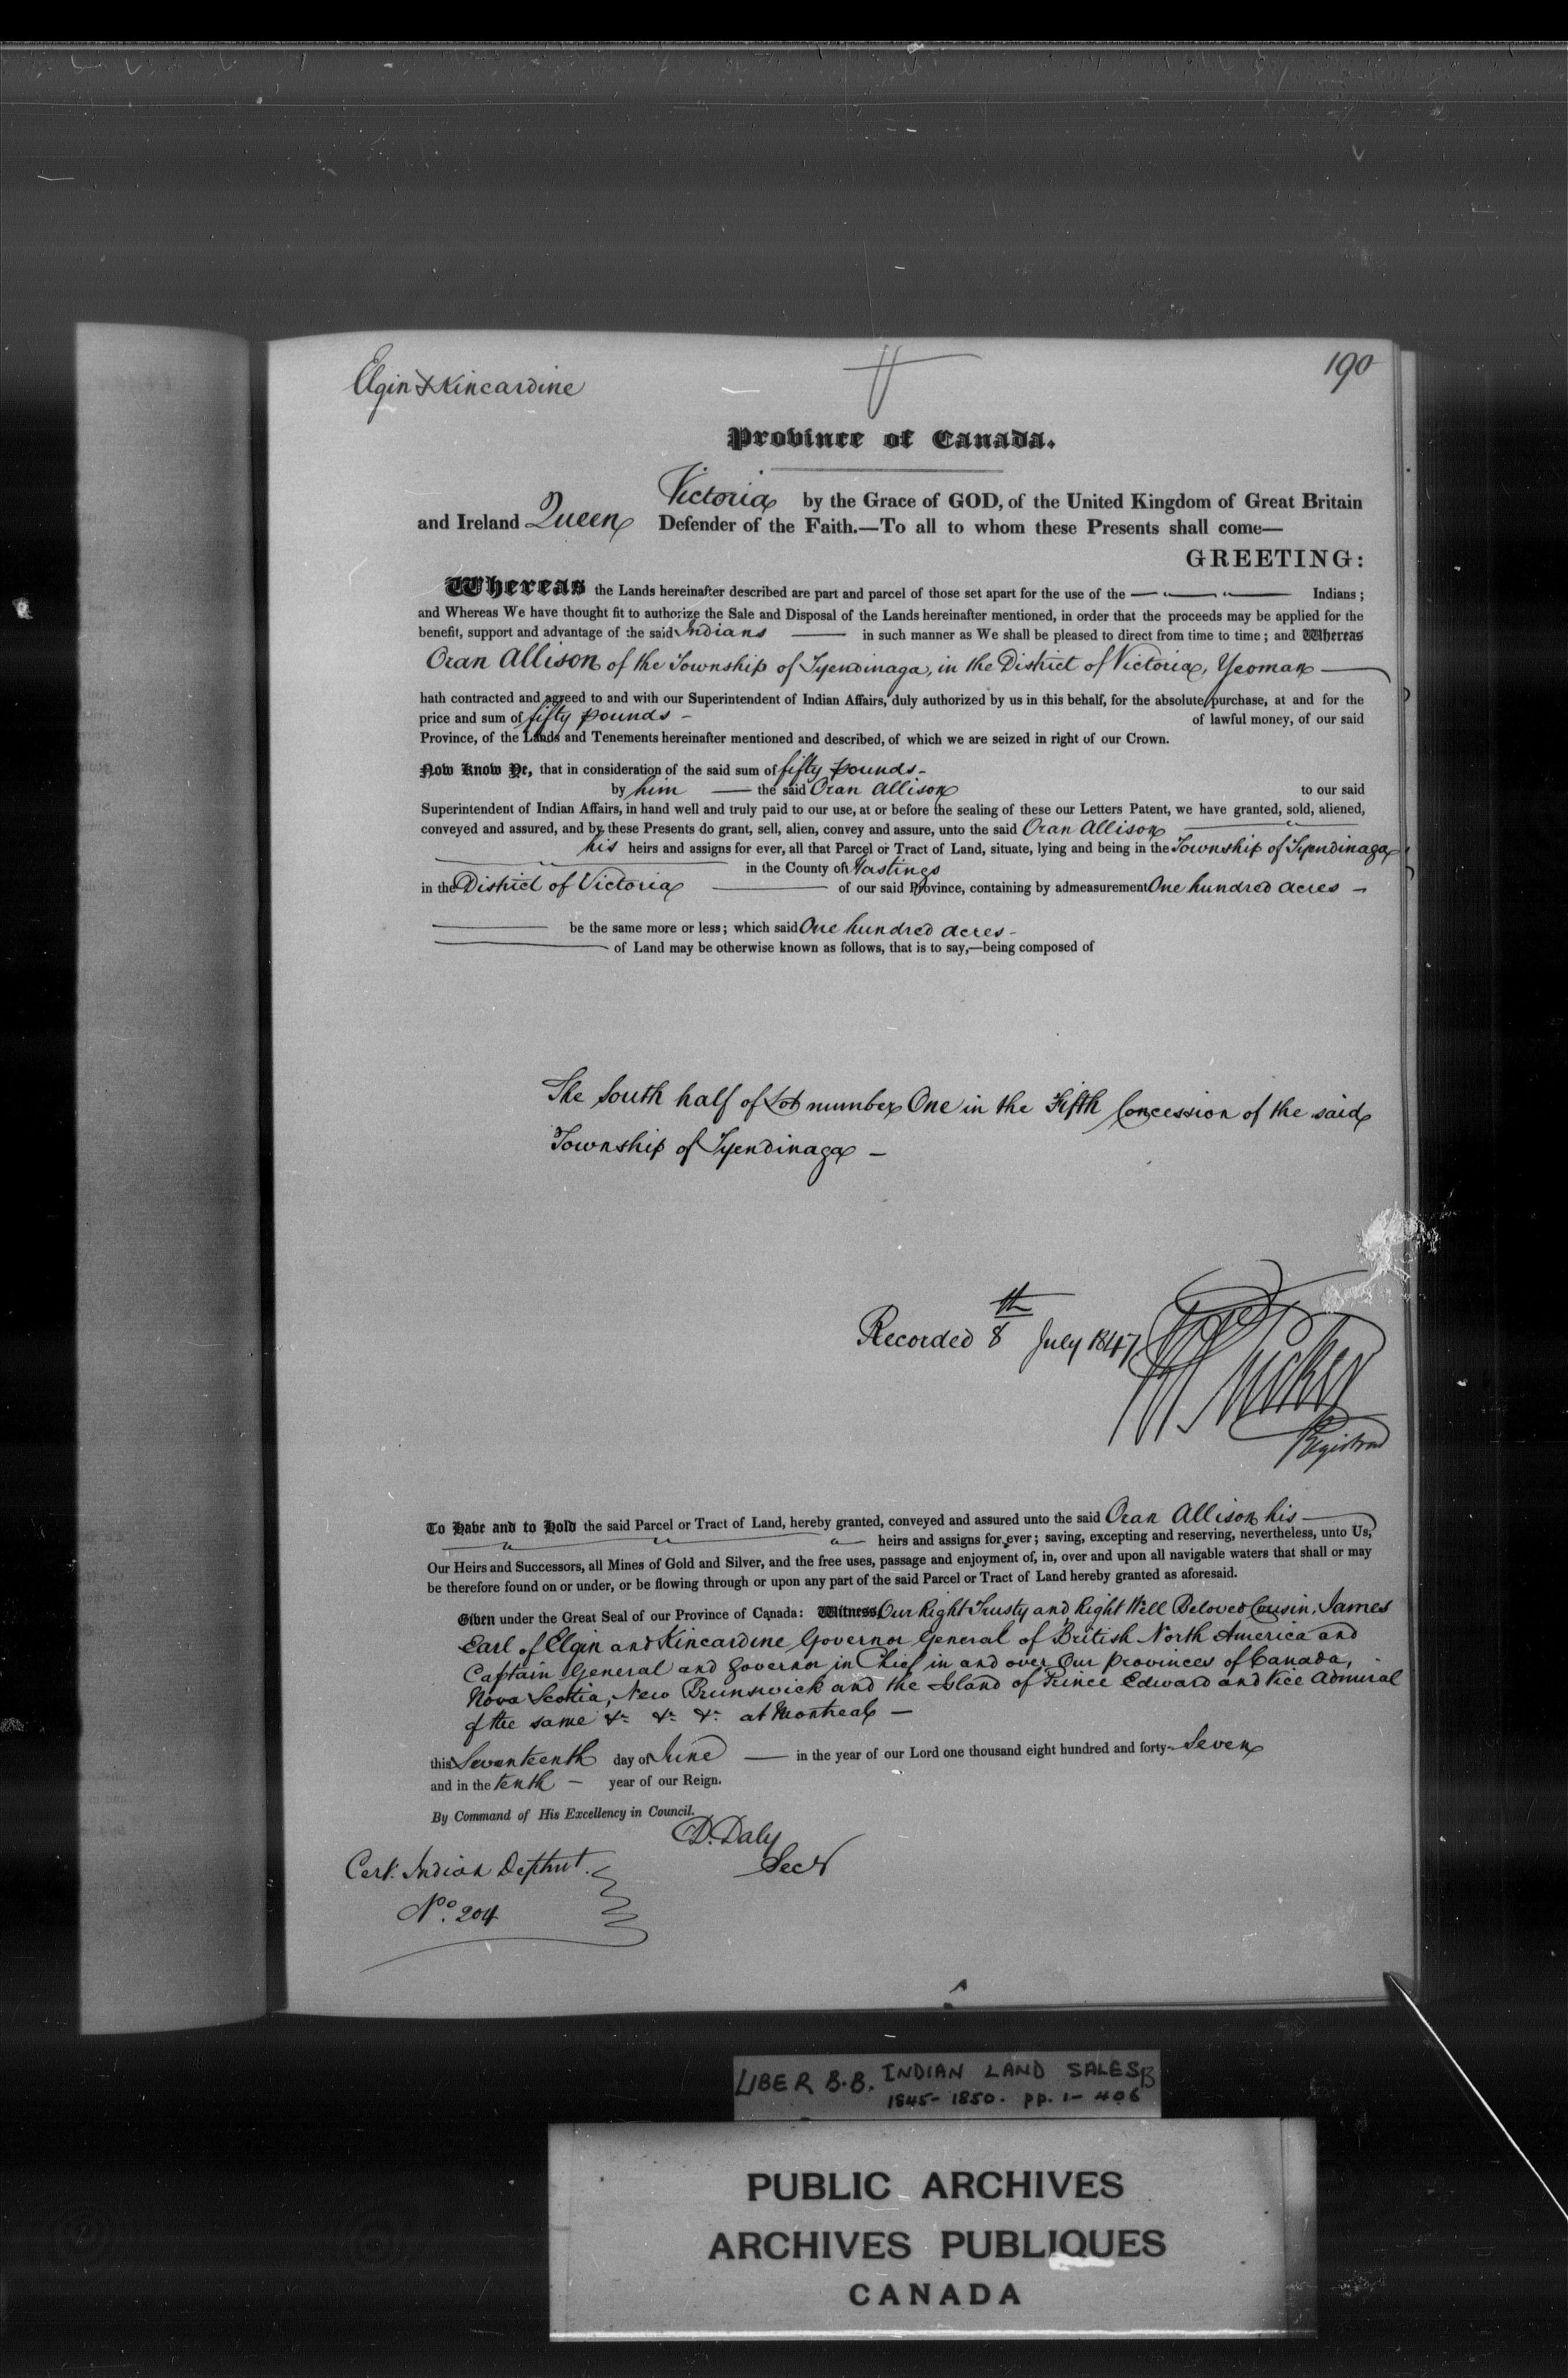 Elgin & Kincardine
190
Province of Canada.
Victoria by the Grace of GOD, of the United Kingdom of Great Britain
and Ireland Queen Defender of the Faith.—To all to whom these Presents shall come—
GREETING:
Whereas the Lands hereinafter described are part and parcel of those set apart for the use of the — " — " — Indians;
and Whereas We have thought fit to authorize the Sale and Disposal of the Lands hereinafter mentioned, in order that the proceeds may be applied for the
benefit, support and advantage of the said Indians — in such manner as We shall be pleased to direct from time to time; and Whereas
Oran Allison of the Township of Tyendinaga, in the District of Victoria, Yeoman —
hath contracted and agreed to and with our Superintendent of Indian Affairs, duly authorized by us in this behalf, for the absolute purchase, at and for the
price and sum of fifty pounds - of lawful money, of our said
Province, of the Lands and Tenements hereinafter mentioned and described, of which we are seized in right of our Crown.
Now Know Ye, that in consideration of the said sum of fifty pounds -
by him — the said Oran Allison to our said
Superintendent of Indian Affairs, in hand well and truly paid to our use, at or before the sealing of these our Letters Patent, we have granted, sold, aliened,
conveyed and assured, and by these Presents do grant, sell, alien, convey and assure, unto the said Oran Allison — " —
his heirs and assigns for ever, all that Parcel or Tract of Land, situate, lying and being in the Township of Tyendinaga
— " — in the County of Hastings
in the District of Victoria — of our said Province, containing by admeasurement One hundred acres —
— be the same more or less; which said One hundred acres -
— of Land may be otherwise known as follows, that is to say,—being composed of
The South half of Lot number One in the Fifth Concession of the said
Township of Tyendinaga —
Recorded 8th July 1847
Registrar
To Have and to Hold the said Parcel or Tract of Land, hereby granted, conveyed and assured unto the said Oran Allison his —
— " — " — " — heirs and assigns for ever; saving, excepting and reserving, nevertheless, unto Us,
Our Heirs and Successors, all Mines of Gold and Silver, and the free uses, passage and enjoyment of, in, over and upon all navigable waters that shall or may
be therefore found on or under, or be flowing through or upon any part of the said Parcel or Tract of Land hereby granted as aforesaid.
Given under the Great Seal of our Province of Canada: Witness, Our Right Trusty and Right Well Beloved Cousin, James
Earl of Elgin and Kincardine Governor General of British North America and
Captain General and Governor in Chief in and over Our Provinces of Canada,
Nova Scotia, New Brunswick and the Island of Prince Edward and Vice Admiral
of the same &c &c &c at Montreal —
this Seventeenth day of June — in the year of our Lord one thousand eight hundred and forty-Seven
and in the tenth — year of our Reign.
By Command of His Excellency in Council.
D. Daly
Secy
Cert. Indian Deptmt.
No. 204
LIBER B.B. INDIAN LAND SALES B
1845-1850. pp. 1-406
PUBLIC ARCHIVES
ARCHIVES PUBLIQUES
CANADA